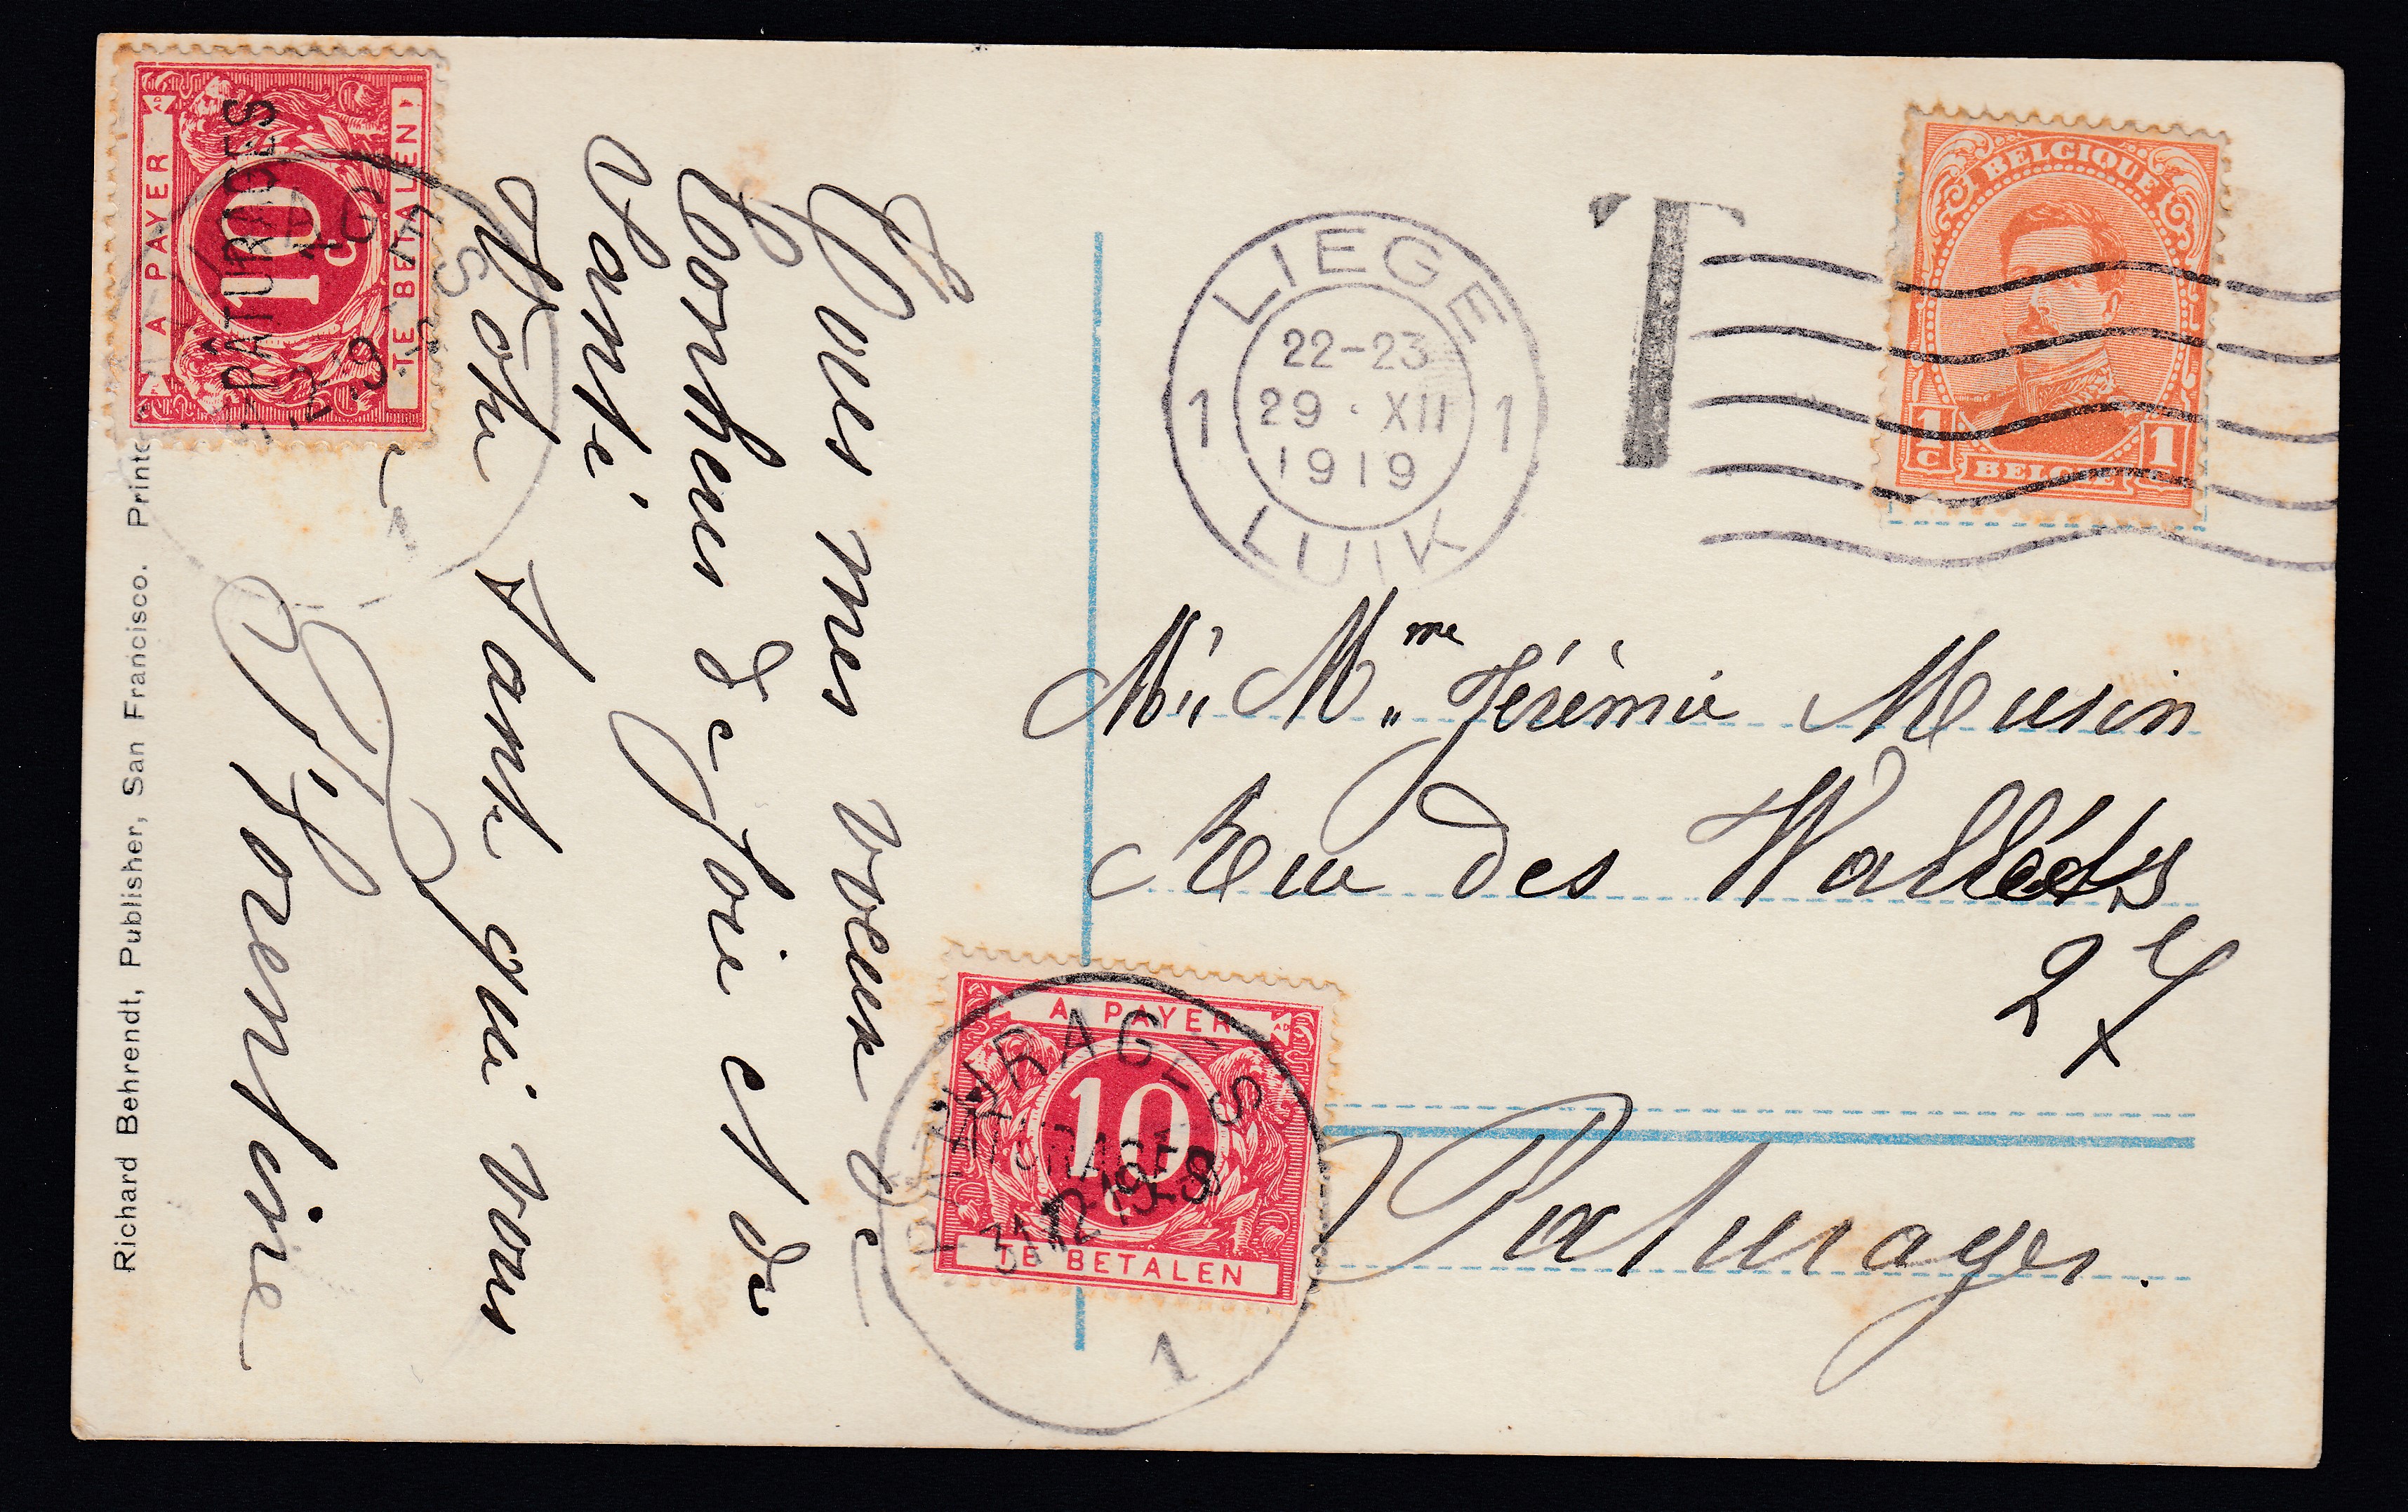 Tous mes voeux de
Bonheur de Joie et de
Santé
Votre Tante qui vous
Florentine
Richard Behrendt, Publisher, San Francisco. Printe
A PAYER
10
C
TE BETALEN
PÂTURAGES
1
LIEGE
22-23
29 · XII
1919
1 1
LUIK
T
BELGIQUE
1 C 1
BELGIË
Mr Mme Jérémie Musin
Rue des
27
Paturages.
A PAYER
10
TE BETALEN
PATURAGES
PATURAGES
1